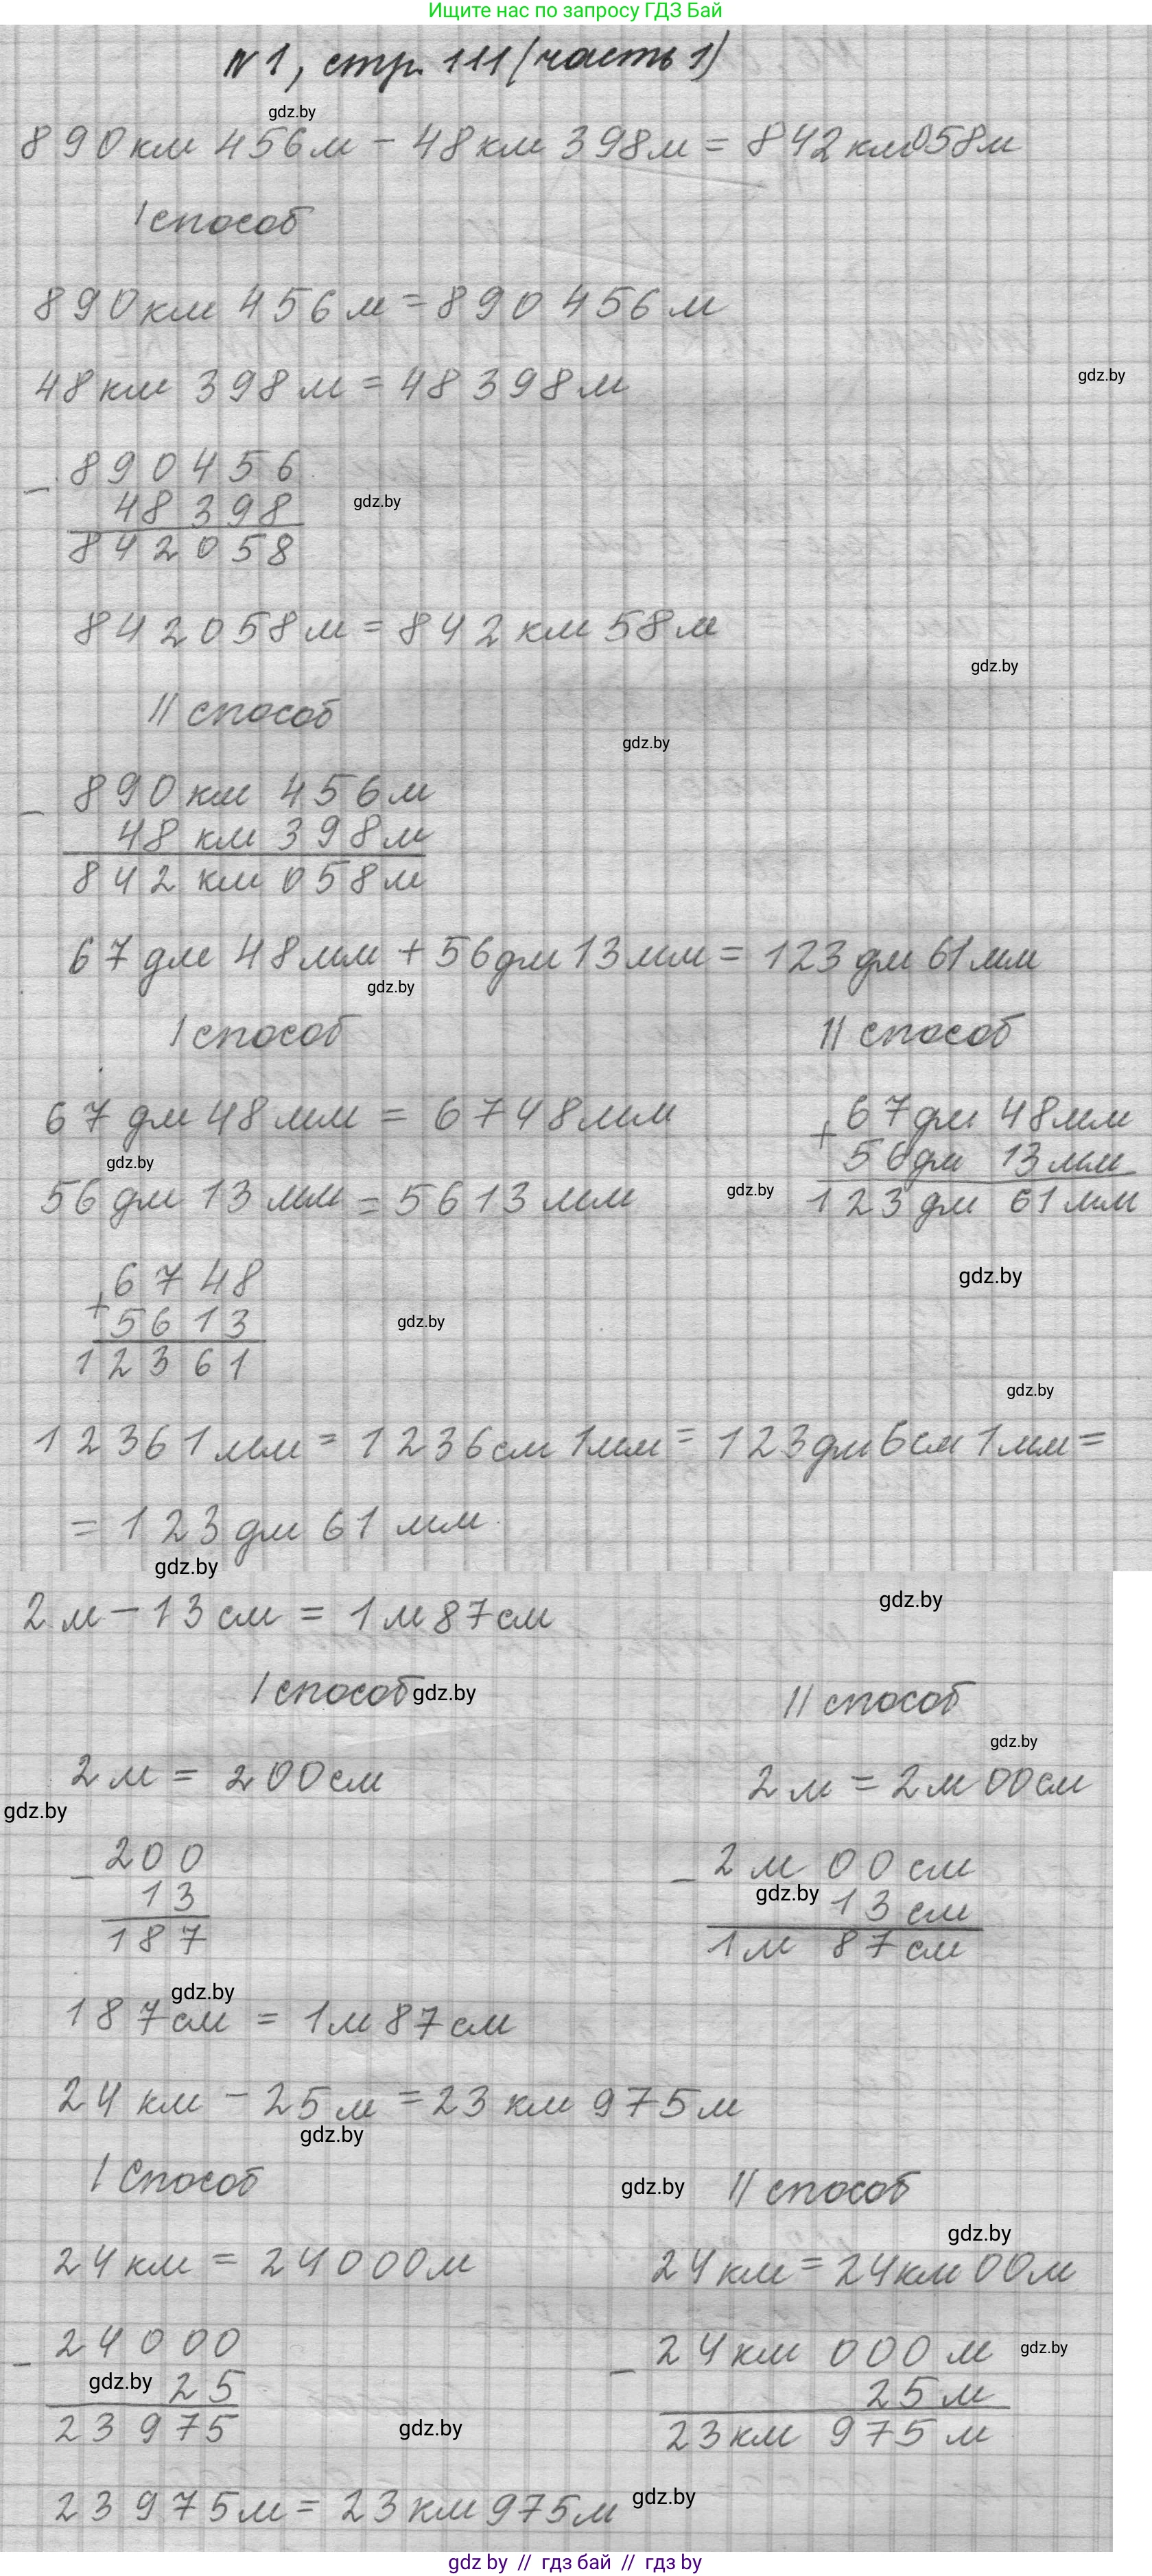 Ищите нас по запросу ГДЗ Бай
N1, стр. 111 (часть 1)
gdz.by
890км 456м - 48км 398м = 842км 058м
I способ
890км 456м = 890 456м
48км 398м = 48 398м
gdz.by
- 890456
48398
gdz.by
842058
842058м = 842км 58м
gdz.by
II способ
gdz.by
- 890км 456м
48км 398м
842км 058м
67дм 48мм + 56дм 13мм = 123дм 61мм
gdz.by
I способ
II способ
67дм 48мм = 6748мм
+ 67дм 48мм
56дм 13мм
123дм 61мм
gdz.by
56дм 13мм = 5613мм
gdz.by
gdz.by
+ 6748
5613
12361
gdz.by
gdz.by
12361мм = 1236см 1мм = 123дм 6см 1мм =
= 123дм 61мм
gdz.by
2м - 13см = 1м 87см
gdz.by
I способ
gdz.by
II способ
gdz.by
2м = 200см
2м = 2м 00см
gdz.by
- 200
13
187
- 2м 00см
gdz.by
13см
1м 87см
gdz.by
187см = 1м 87см
24км - 25м = 23км 975м
gdz.by
I Способ
gdz.by
II способ
gdz.by
24км = 24000м
24км = 24км 00м
- 24000
gdz.by
25
23975
- 24км 000м
gdz.by
25м
23км 975м
gdz.by
23975м = 23км 975м
gdz.by
gdz by // гдз бай // гдз by